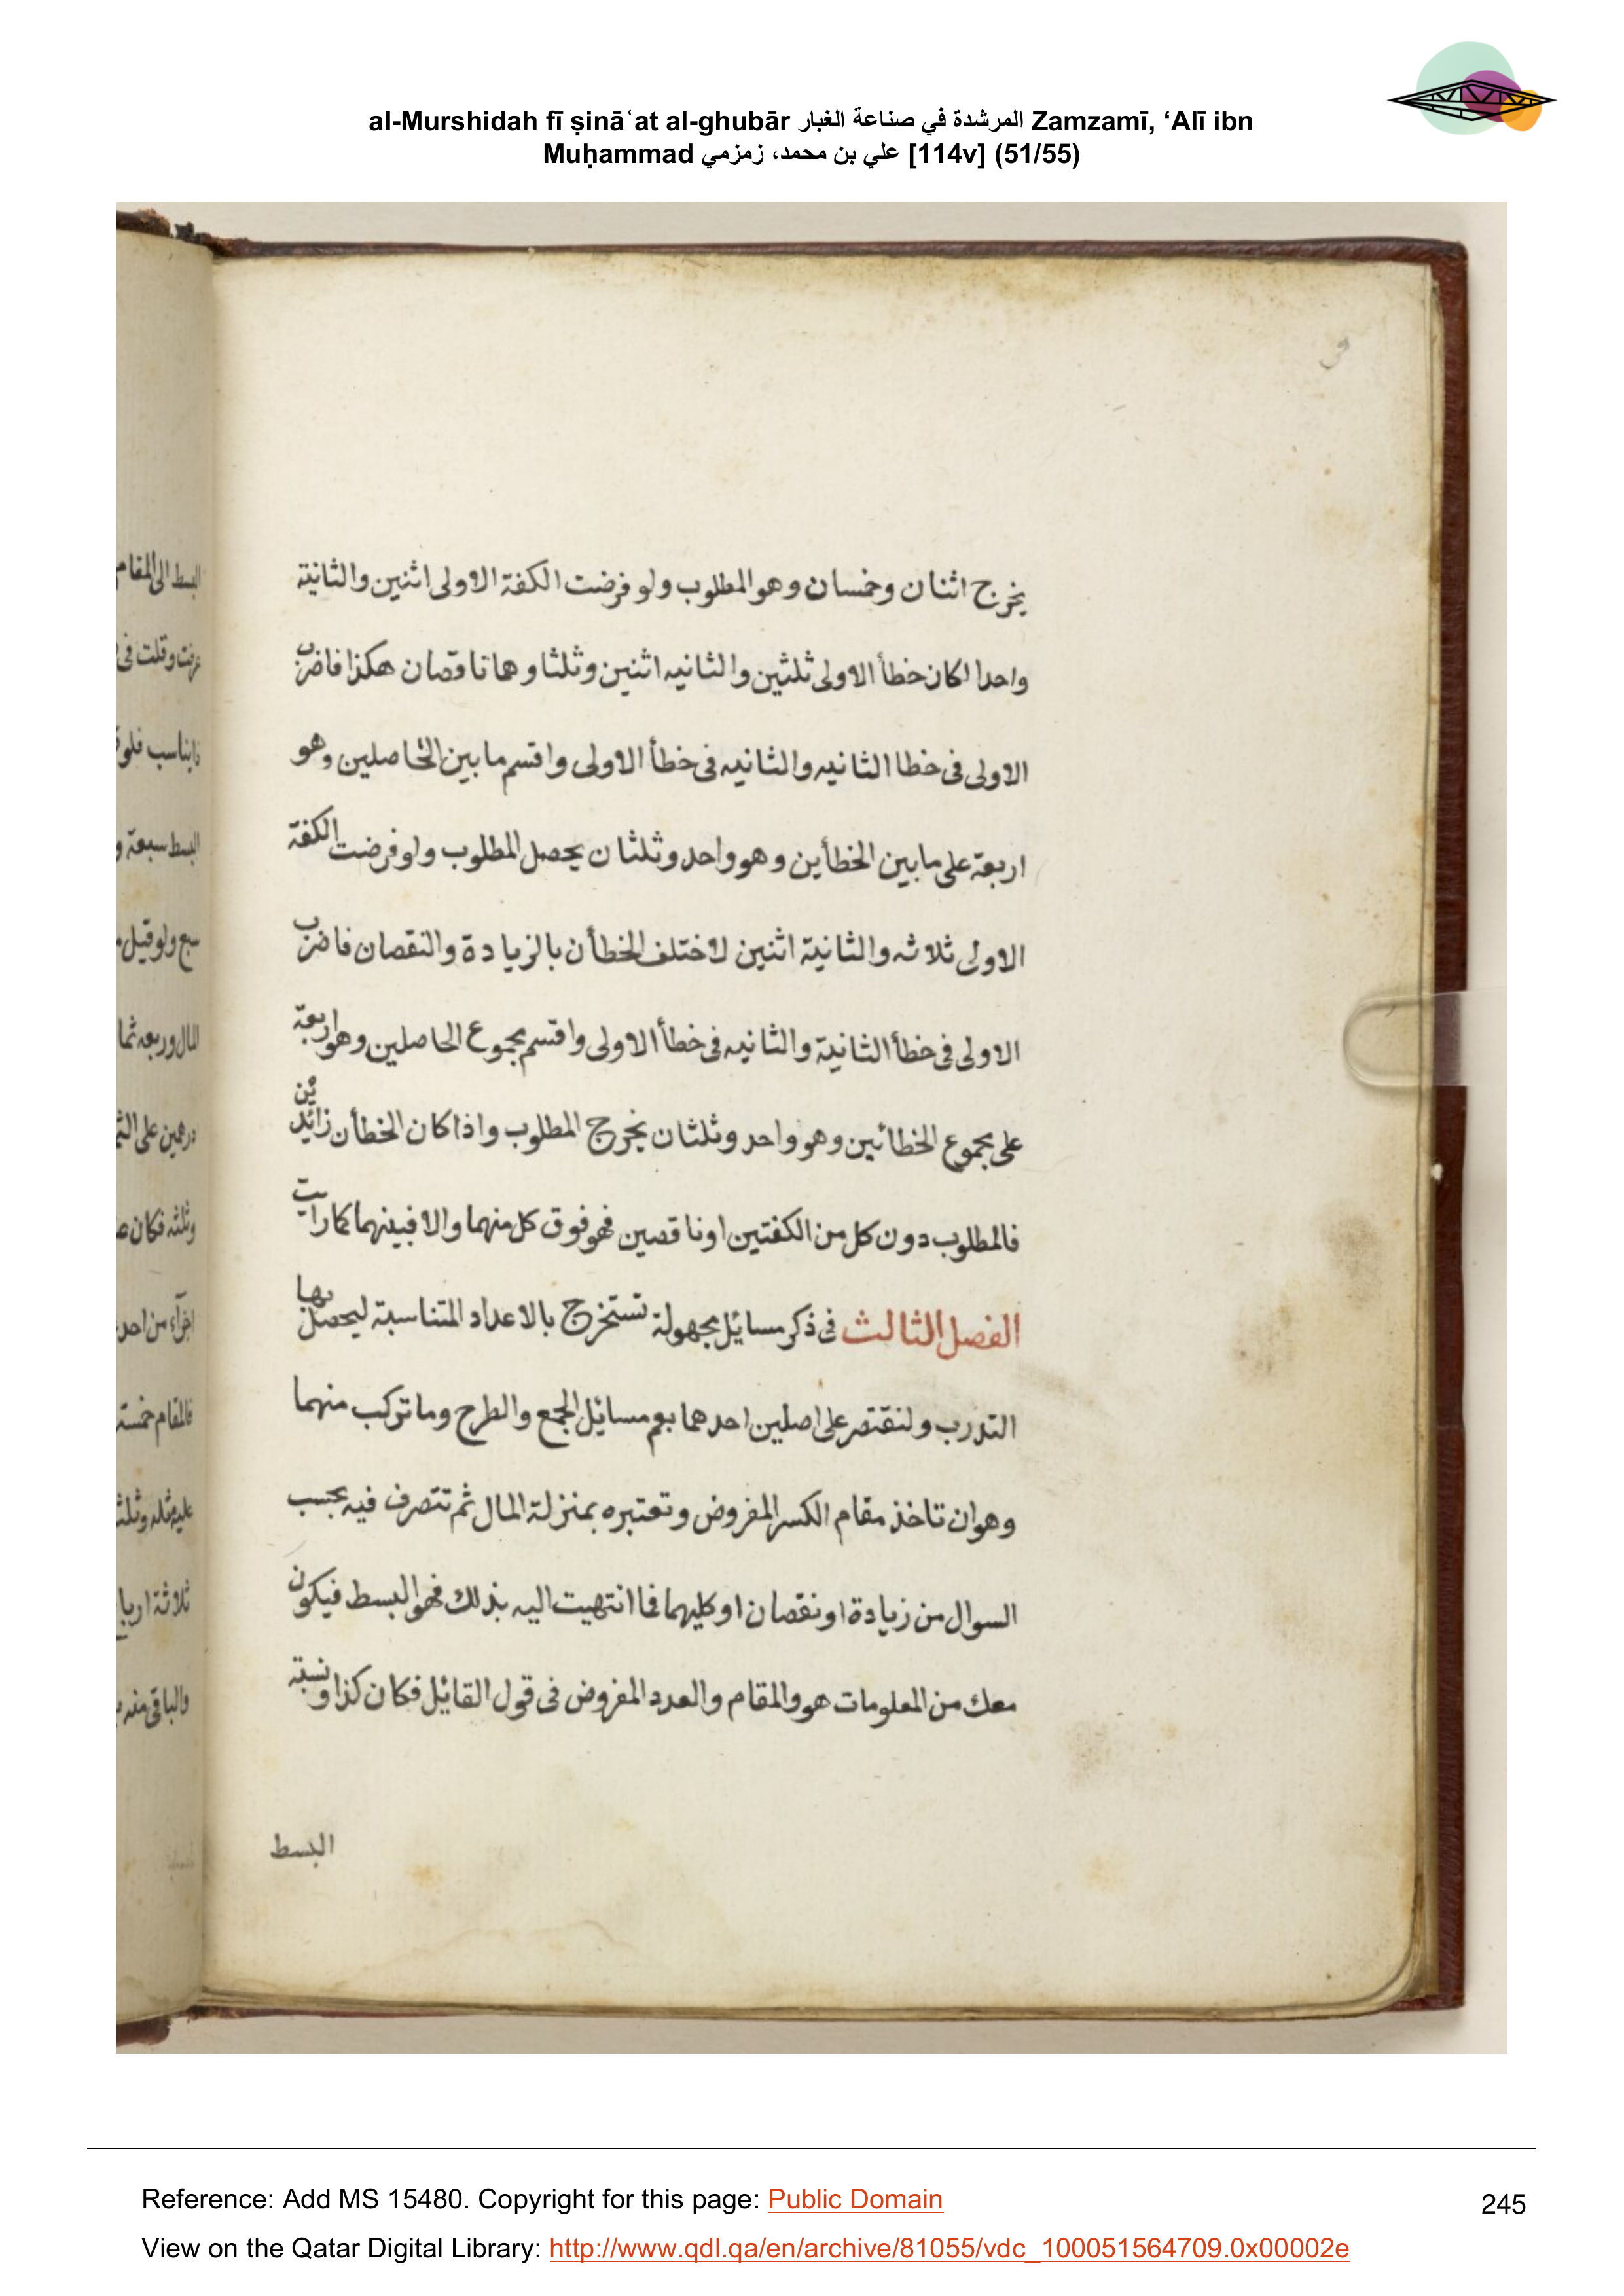 al-Murshidah fī ṣināʿat al-ghubār المرشدة في صناعة الغبار Zamzamī, ‘Alī ibn
Muḥammad علي بن محمد، زمزمي [114v] (51/55)
يخرج اثنان وخمسان وهو المطلوب ولو فرضت الكفة الاولى اثنين والثانية
واحدا لكان خطأ الاولى ثلثين والثانيه اثنين وثلثا وهما ناقصان هكذا فاضرب
الاولى فى خطا الثانيه والثانيه فى خطأ الاولى واقسم ما بين الحاصلين وهو
اربعة على ما بين الخطأين وهو واحد وثلثان يحصل المطلوب ولو فرضت الكفة
الاولى ثلاثه والثانية اثنين لاختلف الخطأن بالزيادة والنقصان فاضرب
الاولى فى خطأ الثانية والثانيه فى خطأ الاولى واقسم مجموع الحاصلين وهو اربعة
على مجموع الخطائين وهو واحد وثلثان يخرج المطلوب واذا كان الخطأن زائدين
فالمطلوب دون كل من الكفتين او ناقصين فهو فوق كل منهما والا فبينهما كما رايت
الفصل الثالث فى ذكر مسائل مجهولة تستخرج بالاعداد المتناسبة ليحصل بها
التدرب ولنقتصر على اصلين احدهما يعم مسائل الجمع والطرح وما تركب منهما
وهو ان تاخذ مقام الكسر المفروض وتعتبره بمنزلة المال ثم تتصرف فيه بحسب
السوال من زيادة او نقصان او كليهما فما انتهيت اليه بذلك فهو البسط فيكون
معك من المعلومات هو والمقام والعدد المفروض فى قول القائل فكان كذا ونسبة
البسط
البسط الى المقام
وقلت فى
يناسب فلو
البسط سبعة و
سبع ولو قيل
المال وربعه ثما
درهمين على
وثلثه فكان
اجزآء من احد
فالمقام خمسة
عليه مثله وثلث
ثلاثة اربا
والباقى منه
Reference: Add MS 15480. Copyright for this page: Public Domain
245
View on the Qatar Digital Library: http://www.qdl.qa/en/archive/81055/vdc_100051564709.0x00002e